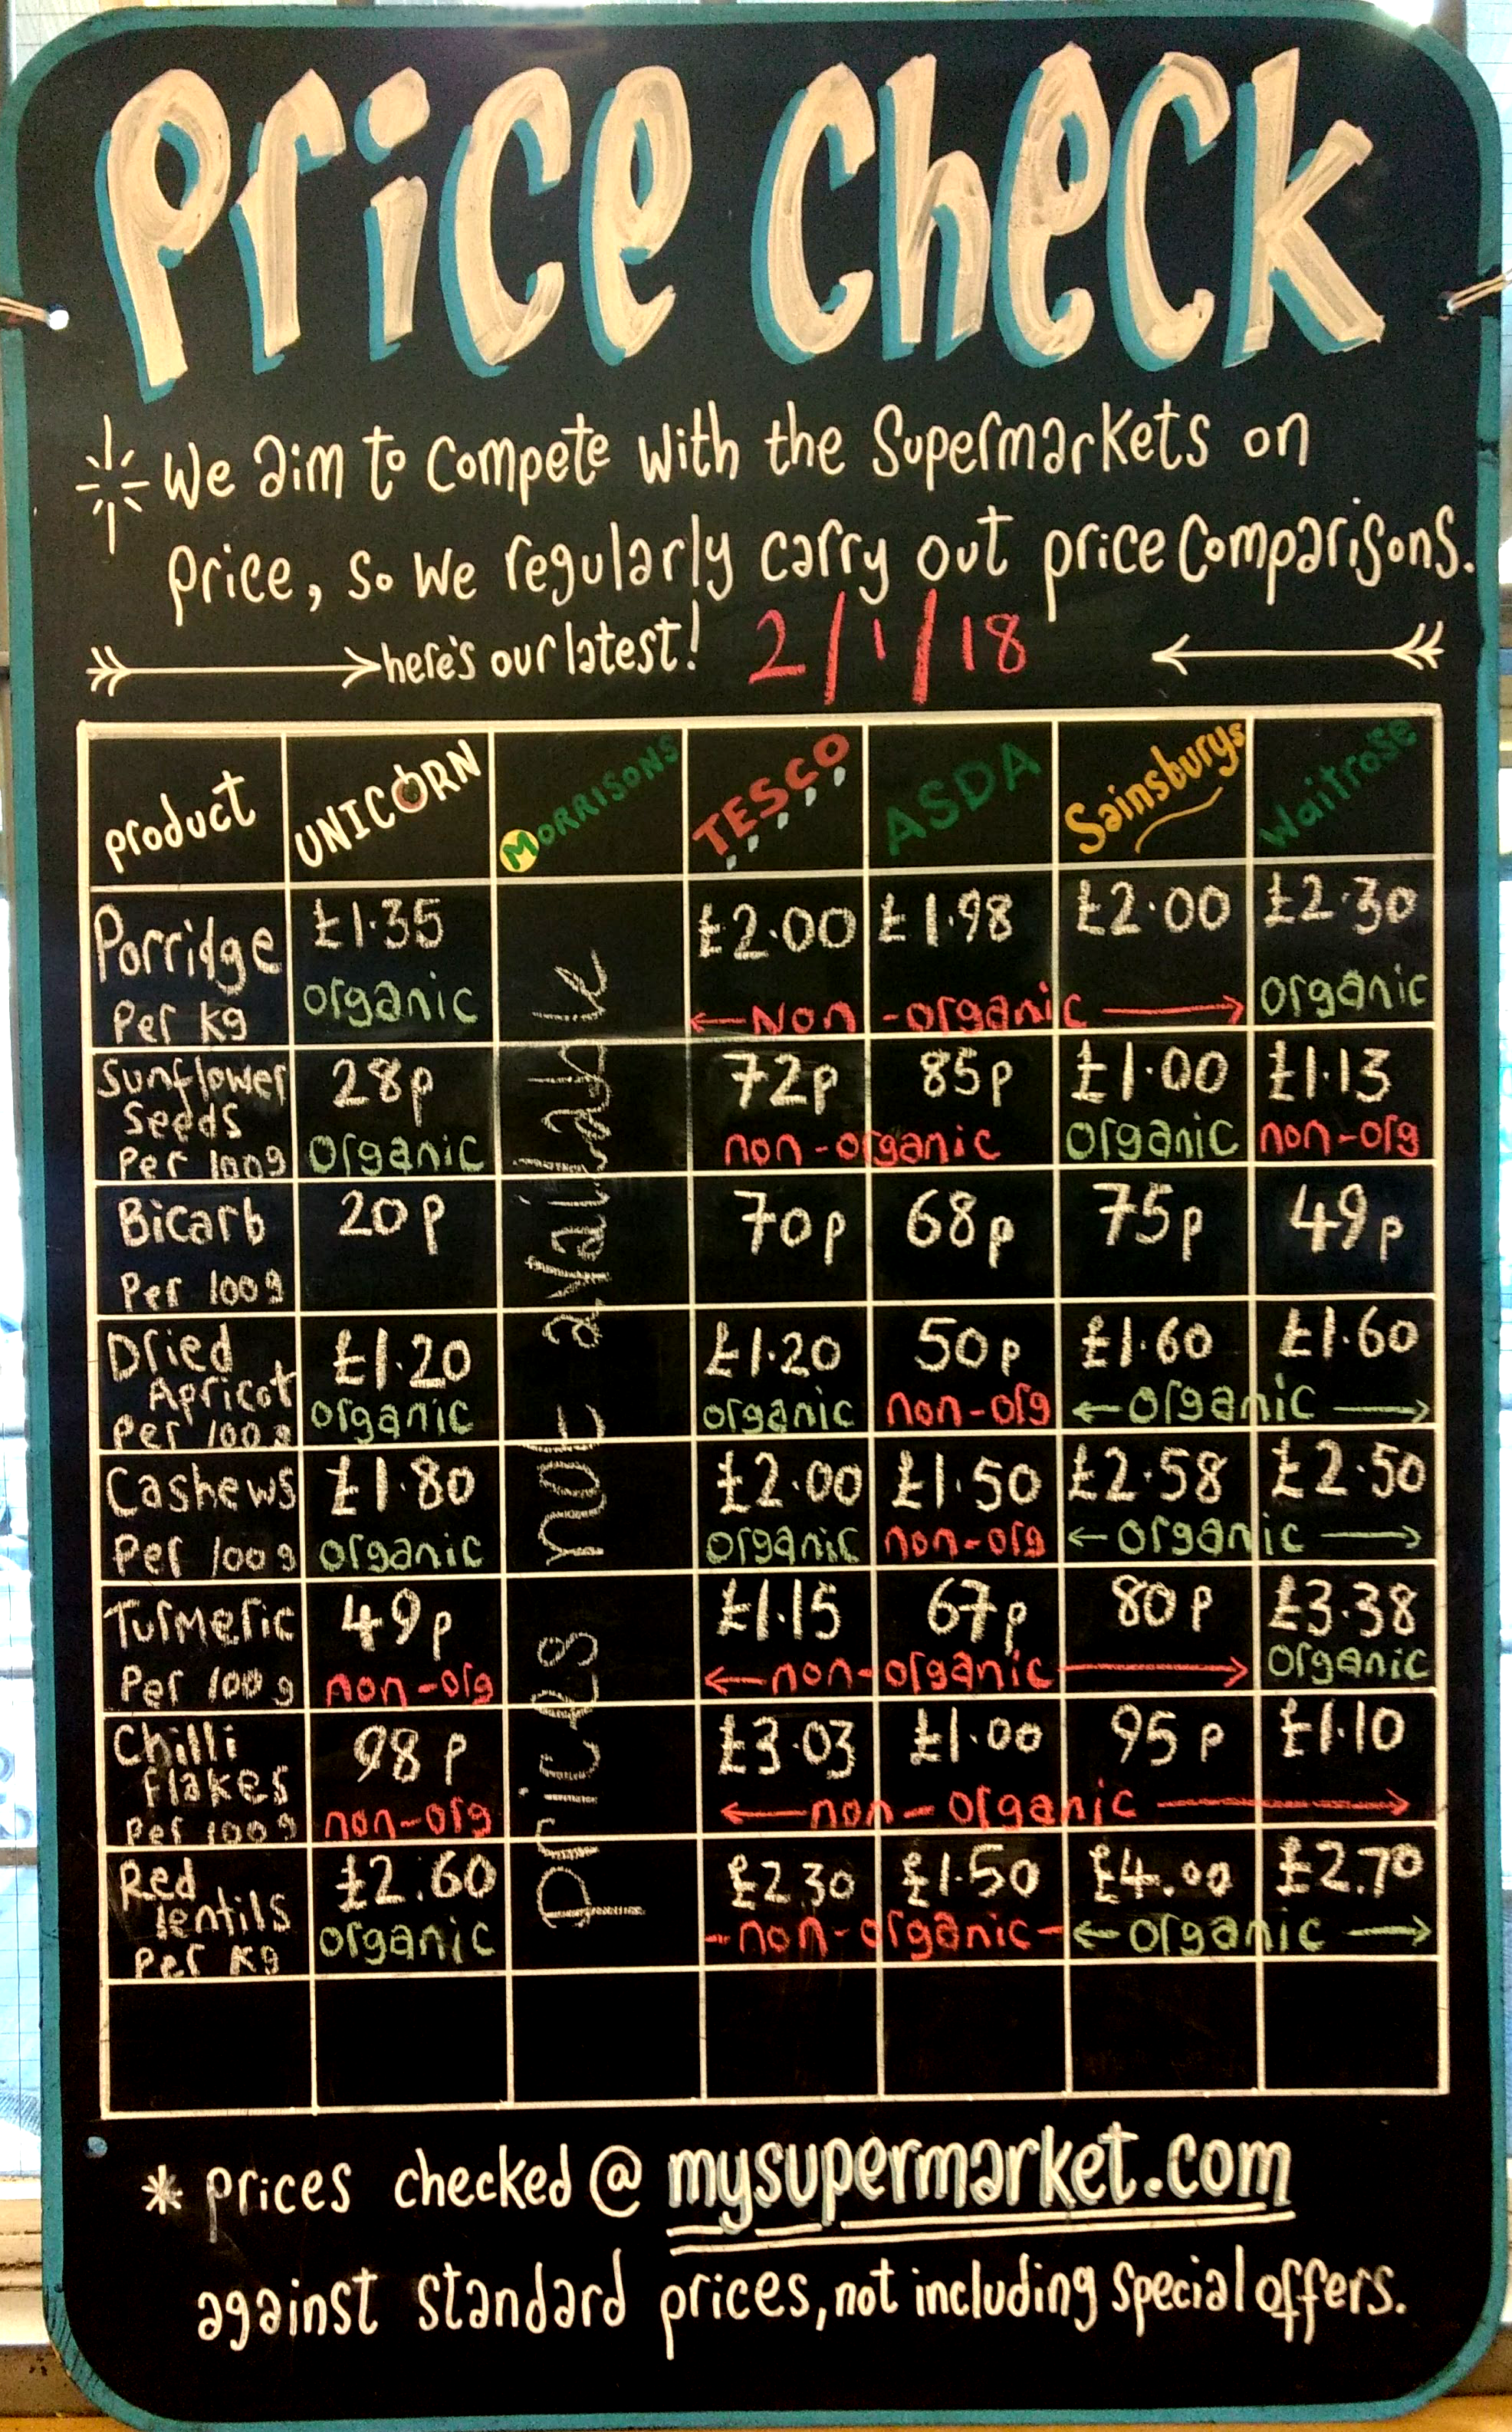 Price Check
We aim to compete with the Supermarkets on
price, so we regularly carry out price comparisons.
here's our latest! 2/1/18
product UNICORN MORRISONS TESCO ASDA Sainsburys Waitrose
Porridge Per kg £1.35 organic £2.00 £1.98 £2.00 Non-organic £2.30 organic
Sunflower Seeds Per 100g 28p organic 72p 85p non-organic £1.00 organic £1.13 non-org
Bicarb Per 100g 20p 70p 68p 75p 49p
Dried Apricot Per 100g £1.20 organic £1.20 organic 50p non-org £1.60 £1.60 organic
Cashews Per 100g £1.80 organic £2.00 organic £1.50 non-org £2.58 £2.50 organic
Turmeric Per 100g 49p non-org £1.15 67p 80p non-organic £3.38 organic
Chilli flakes Per 100g 98p non-org £3.03 £1.00 95p £1.10 non-organic
Red lentils Per Kg £2.60 organic £2.30 £1.50 non-organic £4.00 £2.70 organic
prices not available
* prices checked @ mysupermarket.com
against standard prices, not including special offers.